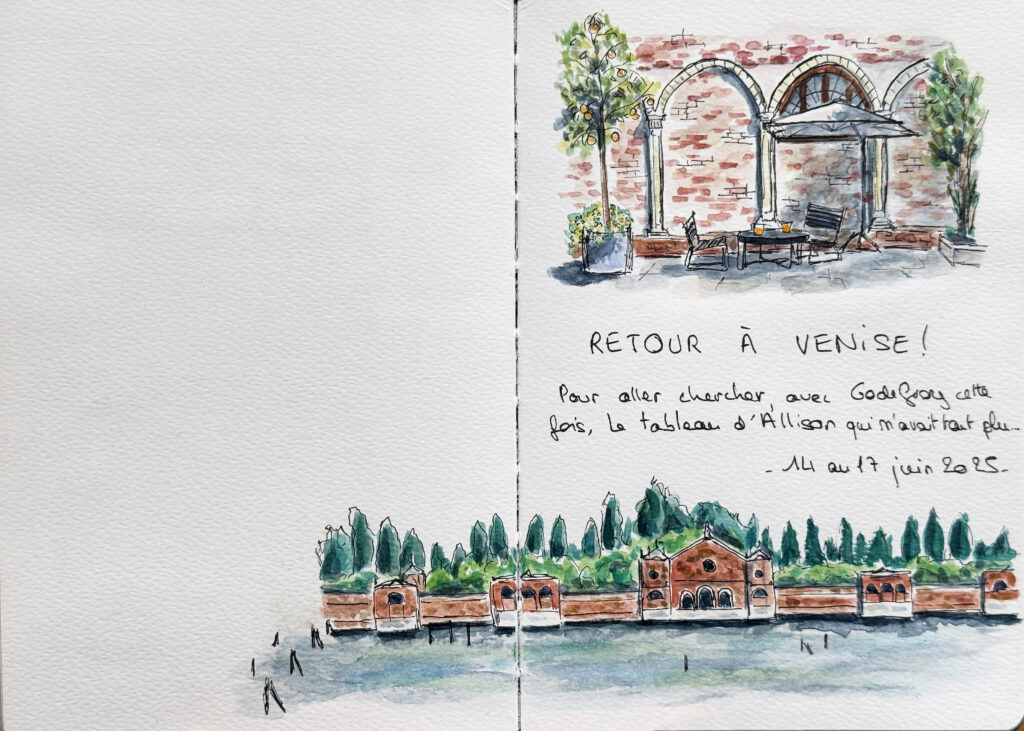 RETOUR À VENISE !
Pour aller chercher, avec Godefroy cette
fois, le tableau d'Allison qui m'avait tant plu...
- 14 au 17 juin 2025 -